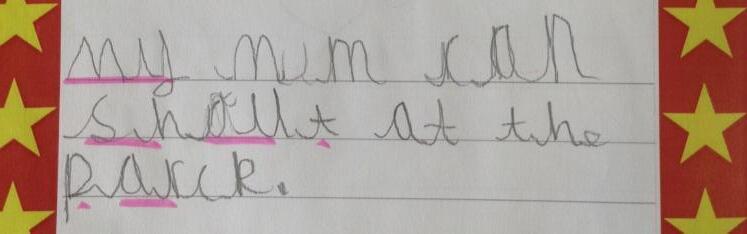 my mum can
shout at the
parck.